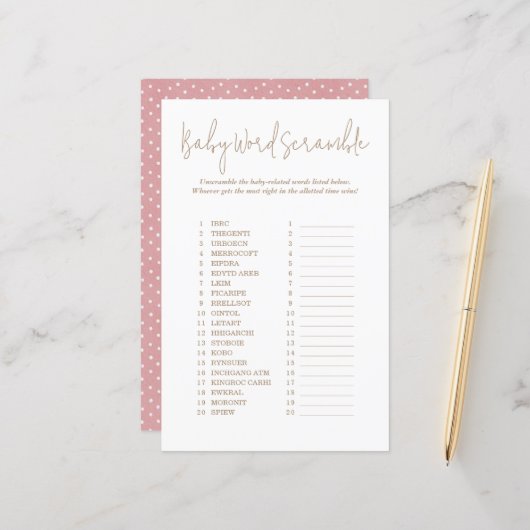 Baby Word Scramble
Unscramble the baby-related words listed below.
Whoever gets the most right in the allotted time wins!
1 IBRC 1
2 THEGENTI 2
3 URBOECN 3
4 MERROCOFT 4
5 EIPDRA 5
6 EDYTD AREB 6
7 LKIM 7
8 FICARIPE 8
9 RRELLSOT 9
10 OINTOL 10
11 LETART 11
12 HHIGARCHI 12
13 STOBOIE 13
14 KOBO 14
15 RYNSUER 15
16 INCHGANG ATM 16
17 KINGROC CARHI 17
18 EWKRAL 18
19 MORGNIT 19
20 SPIEW 20